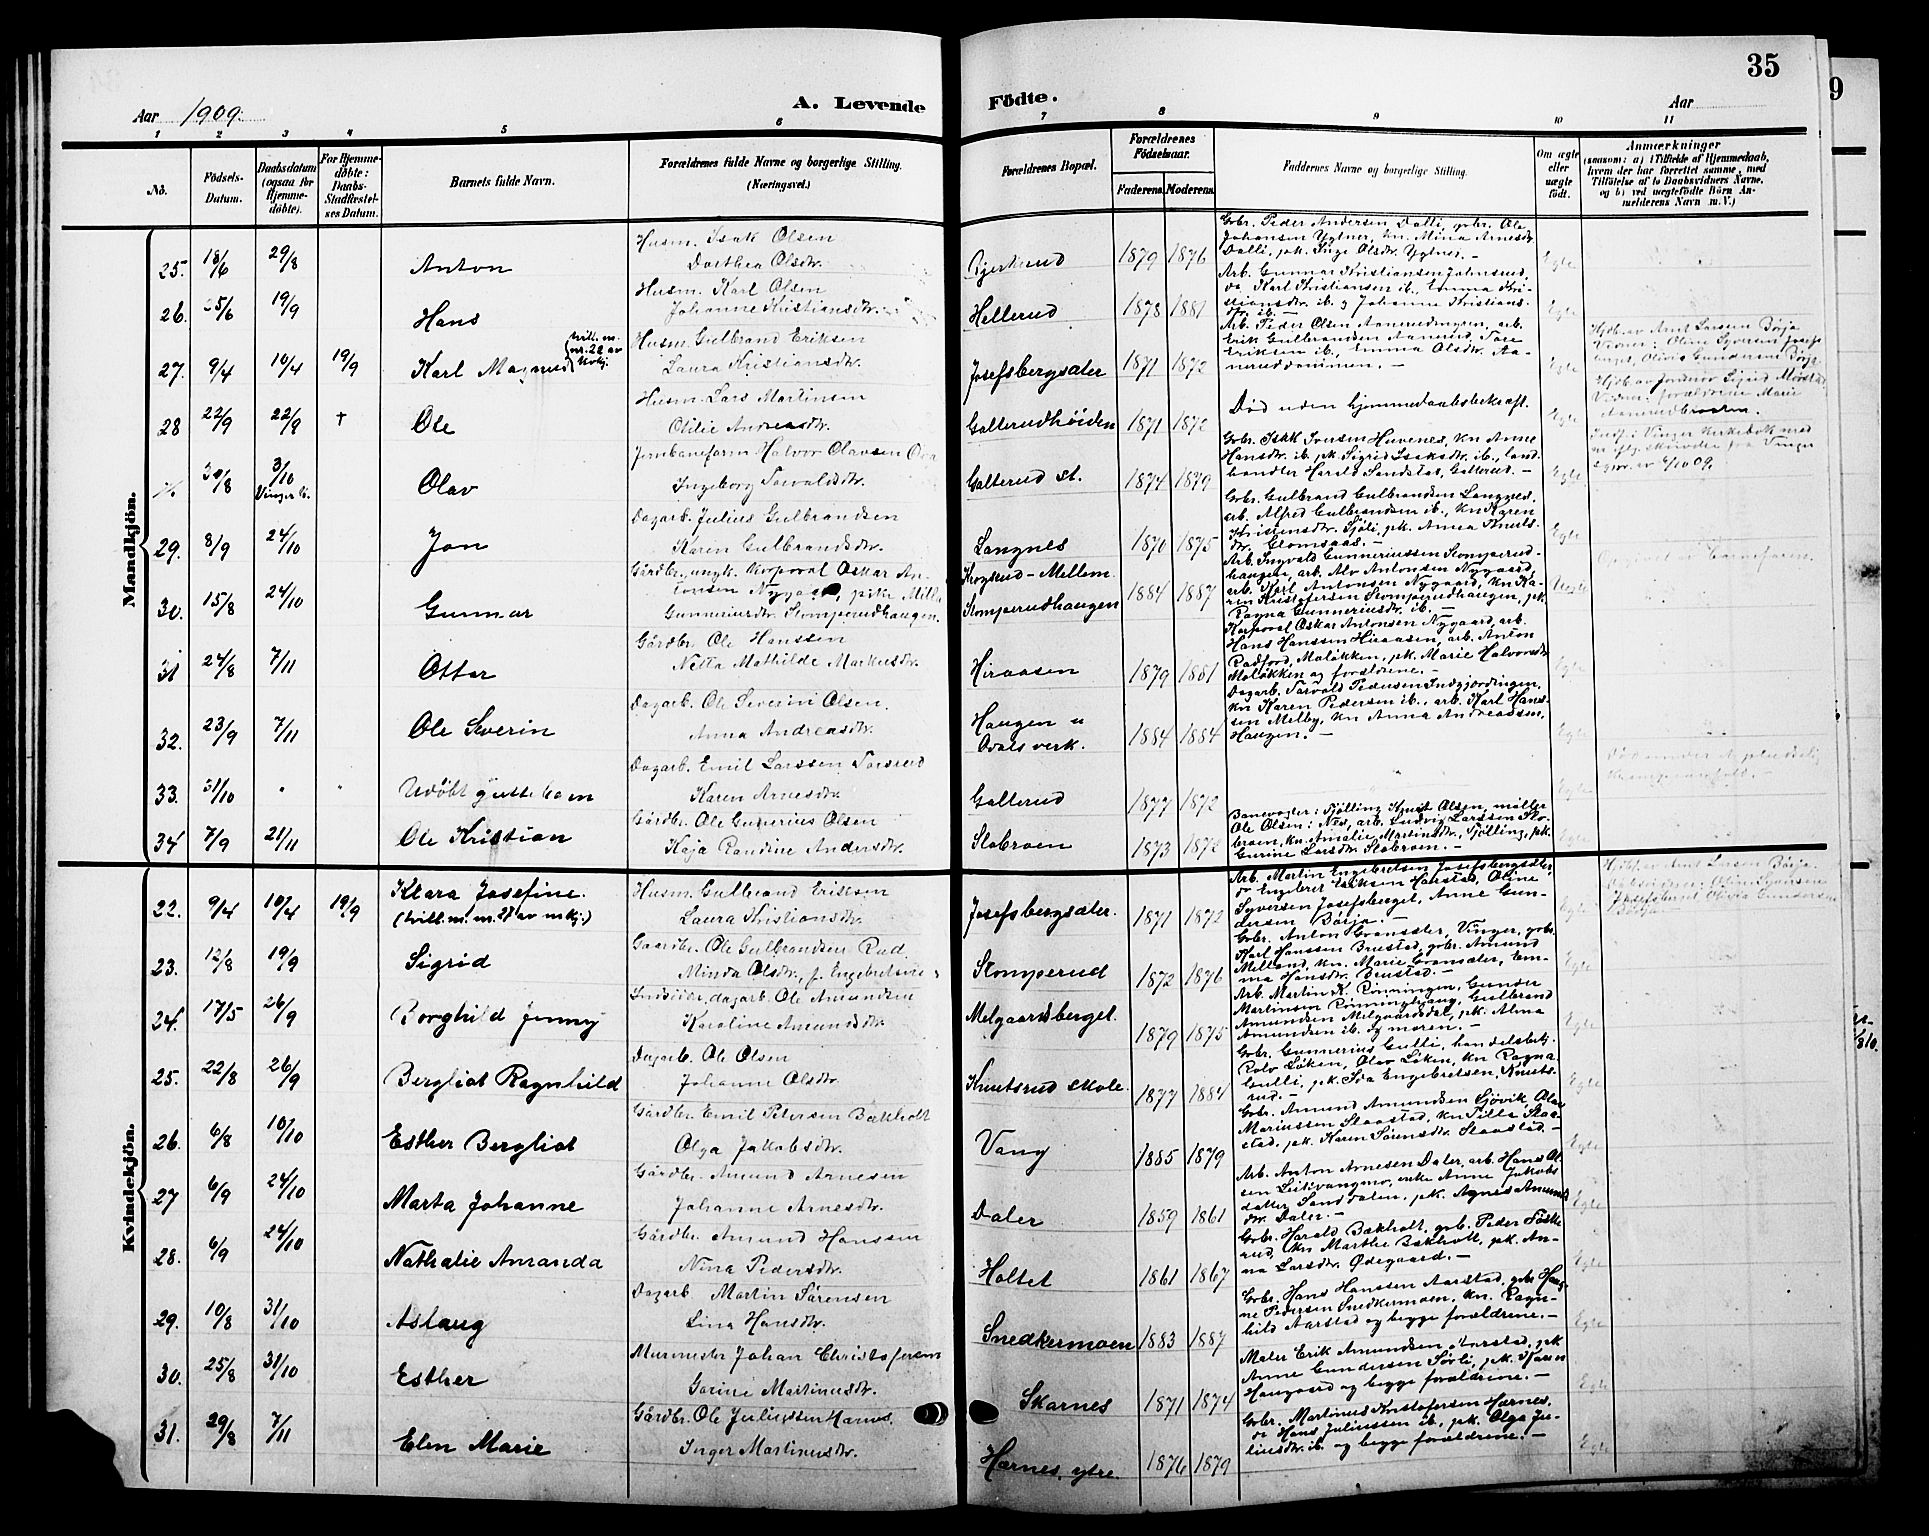 35
Aar 1909.
A. Levende
Födte.
Aar
1 2 3 4 5 6 7 8 9 10 11
No.
Födsels-Datum.
Daabsdatum (ogsaa for Hjemme-döbte).
For Hjemme-döbte: Daabs-Stadfæstel-ses Datum.
Barnets fulde Navn.
Forældrenes fulde Navne og borgerlige Stilling. (Næringsvei.)
Forældrenes Bopæl.
Forældrenes Födselsaar.
Faderens. Moderens.
Faddernes Navne og borgerlige Stilling.
Om ægte eller uægte födt.
Anmærkninger
(saasom: a) i Tilfælde af Hjemmedaab, hvem der har forrettet samme, med Tilföielse af to Daabsvidners Navne, og b) ved uægtefödte Börn An-melderens Navn m.V.)
Mandkjön.
25. 18/6 29/8 Anton
Husm. Isak Olsen
Dorthea Olsdtr.
Bjerkerud 1879 1876
Gbr. Peder Andersen Dalli, gbr. Ole
Johansen Ygtner, kn. Mina Arnesdtr.
Dalli, pk. Inge Olsdtr. Ygtner. -
Egte
26. 25/6 19/9 Hans
Husm. Karl Olsen
Johanne Kristiansdtr.
Hellerud 1878 1881
Arb. Gunnar Kristiansen Johnsrud,
do Karl Kristiansen ib., Emma Kri-
stiansdtr. ib. og Johanne Kristians-
dtr. ib. -
Egte
27. 9/4 10/4 19/9 Karl Magnus (tvill. m. nr. 22 av kvkj.
Husm. Gulbrand Eriksen
Laura Kristiansdtr.
Josefsbergsdler 1871 1872
Arb. Peder Olsen Aanerudmyren, arb.
Erik Gulbrandsen Aanerud, Tore
Eriksen ib., Emma Olsdtr. Aa-
neruddammen. -
Egte
Hjdb. av Arnt Larsen Börja
Vidner: Oline Syversen Josefs-
berget, Olivia Gundersen Börja
28 22/9 22/9 † Ole
Husm. Lars Martinsen
Otilie Andreasdtr.
Galterudhöiden 1871 1872
Död uden hjemmedaabsbekræft.
Egte
Hjdb. av Jordmor Sigrid Mörstad
Vidner: forældrene Marie
30/8 3/10 Vinger k. Olav
Jernbaneform Halvor Olavsen
Ingeborg Torvaldsdtr.
Galterud st. 1874 1879
Gbr. Isak Iversen Huvenes, kn Anne
Hansdtr. ib. pk. Sigrid Isaksdtr. ib., land-
handler Harald Sandstad, Galterud. -
Egte
Indf. i Vinger kirkebok
29. 8/9 24/10 Jon
Dagarb. Julius Gulbrandsen
Karen Gulbrandsdtr.
Langnes 1870 1875
Gbr. Gulbrand Gulbrandsen Langnes,
arb. Alfred Gulbrandsen ib., kn Karen
Kristensdtr. Sjöli, pk. Anna Knuts-
dtr. Glomsaas. -
Egte
30. 15/8 24/10 Gunnar
Gårdbr., ungk. korporal Oskar An-
tonsen Nygaard, pike Milla
Gunneriusdtr. Stomperudhaugen.
Krogsrud - Mellem
Stomperudhaugen 1884 1887
Arb. Ingvald Gunneriussen Stomperud-
haugen, arb. Alv Antonsen Nygaard,
arb. Karl Antonsen Nygaard, kn Ka-
ren Kristofersen Stomperudhaugen, pk.
Ragna Gunneriusdtr. ib. -
Uegte
31 24/8 7/11 Ottar
Gårdbr. Ole Hanssen
Netta Mathilde Markusdtr.
Hiraasen 1879 1881
Korporal Oskar Antonsen Nygaard, arb.
Hans Hanssen Hiraasen, arb. Anton
Radford, Malökken, pk. Marie Halvorsdtr
Malökken og forældrene. -
Egte
32. 23/9 7/11 Ole Severin
Dagarb. Ole Severin Olsen.
Anna Andreasdtr.
Haugen u
Ovals verk. 1884 1884
Dagarb. Torvald Pedersen Indgjordingen,
kn Karen Pedersen ib., arb. Karl Hans-
sen Melby, kn Anna Andreassen,
Haugen. -
Egte
33. 31/10 " " Udöbt guttebarn
Dagarb. Emil Larssen Torsrud
Karen Arnesdtr.
Galterud 1877 1872
Egte
34 7/9 21/11 Ole Kristian
Gårdbr. Ole Gunerius Olsen
Kaja Randine Andersdtr.
Slobroen 1873 1872
Banevogter: Fjölling Knut Olsen, möller
Ole Olsen: Nes, arb. Ludvig Larssen Slo-
broen, kn. Amalie Martinsdtr. Fjölling, pk.
Gurine Larsdtr. Slobroen. -
Egte
Kvindekjön.
22. 9/4 10/4 19/9 Klara Josefine.
(tvill. m. nr. 27 av mkj.)
Husm. Gulbrand Eriksen
Laura Kristiansdtr.
Josefsbergsdler. 1871 1872
Arb. Martin Engebretsen Josefsbergsdler,
do Engebret Eriksen Harstad, Oline
Syversen Josefsberget, Anne Gun-
dersen Börja. -
Egte
Hjdbt. av Arnt Larsen Börja.
Daabsvidner: Oline Syversen
Josefsberget Olivia Gundersen
Börja
23. 12/8 19/9 Sigrid
Gaardbr. Ole Gulbrandsen Rud
Minda Olsdtr., f. Engebretsen
Stomperud 1872 1876
Gbr. Anton Gransæter, Vinger, gbr.
Karl Hanssen Brustad, gbr. Amund
Melland, kn. Marie Gransæter, Em-
ma Hansdtr. Brustad. -
Egte
24. 17/5 26/9 Borghild Jenny
Indsidder, dagarb. Ole Amundsen
Karoline Amundsdtr.
Melgaardsberget. 1879 1875
Arb. Martin K. Rönningen, Gunder
Martinsen Rönninghaug, Gulbrand
Amundsen Melgaardsdal, pk. Alma
Amundsen ib. og moren. -
Egte
25. 22/8 26/9 Bergliot Ragnhild
Dagarb. Ole Olsen
Johanne Olsdtr.
Knutsrud skole. 1877 1884
Gbr. Gunnerius Gulli, handelsbetj.
Rolv Löken, Olav Löken, kn Ragna
Gulli, pk. Ida Engebretsen, Knuts-
rud. -
Egte
26. 6/8 10/10 Esther Bergliot
Gårdbr. Emil Petersen Bækholt
Olga Jakobsdtr.
Vang 1885 1879
Gbr. Amund Amundsen Sjövik, Olav
Mariussen Slaastad, kn Tilla Slaa-
stad, pk. Karen Sörensdtr. Slaastad. -
Egte
27 6/9 24/10 Marta Johanne
Gårdbr. Amund Arnesen
Johanne Arnesdtr.
Daler 1859 1861
Arb. Anton Arnesen Daler, arb. Hans Ol-
sen Leitevangmo, enke Anne Jakobs
datter Sanddalen, pk. Agnes Amunds
dtr. Daler. -
Egte
28. 6/9 24/10 Nathalie Amanda
Gårdbr. Amund Hanssen
Nina Pedersdtr.
Holtet 1861 1867
Gbr. Harald Bækholt, gbr. Peder Föske
rud, kn Marthe Bækholt, pk. An-
na Larsdtr. Ödegaard. -
Egte
29. 10/8 31/10 Aslaug
Dagarb Martin Sörensen
Lina Hansdtr.
Snedkermoen 1883 1887
Gbr. Hans Hansen Aarstad, gbr Han-
ne Pedersen Snedkermoen, kn. Ragn-
hild Aarstad og begge forældrene. -
Egte
30. 25/8 31/10 Esther
Murmester Johan Christofersen
Gorine Martinusdtr.
Skarnes 1871 1874
Maler Erik Amundsen Storstad, pk
Anne Gundersen Sörli, pk. Karen
Haugaard og begge forældrene. -
Egte
31. 29/8 7/11 Elen Marie
Gårdbr. Ole Juliussen Harnes.
Inger Martinusdtr.
Hærnes, ytre. 1876 1879
Gbr. Martinus Kristofersen Hærnes,
do Hans Juliussen ib., pk. Olga Ju-
liusdtr. ib. og begge forældrene. -
Egte